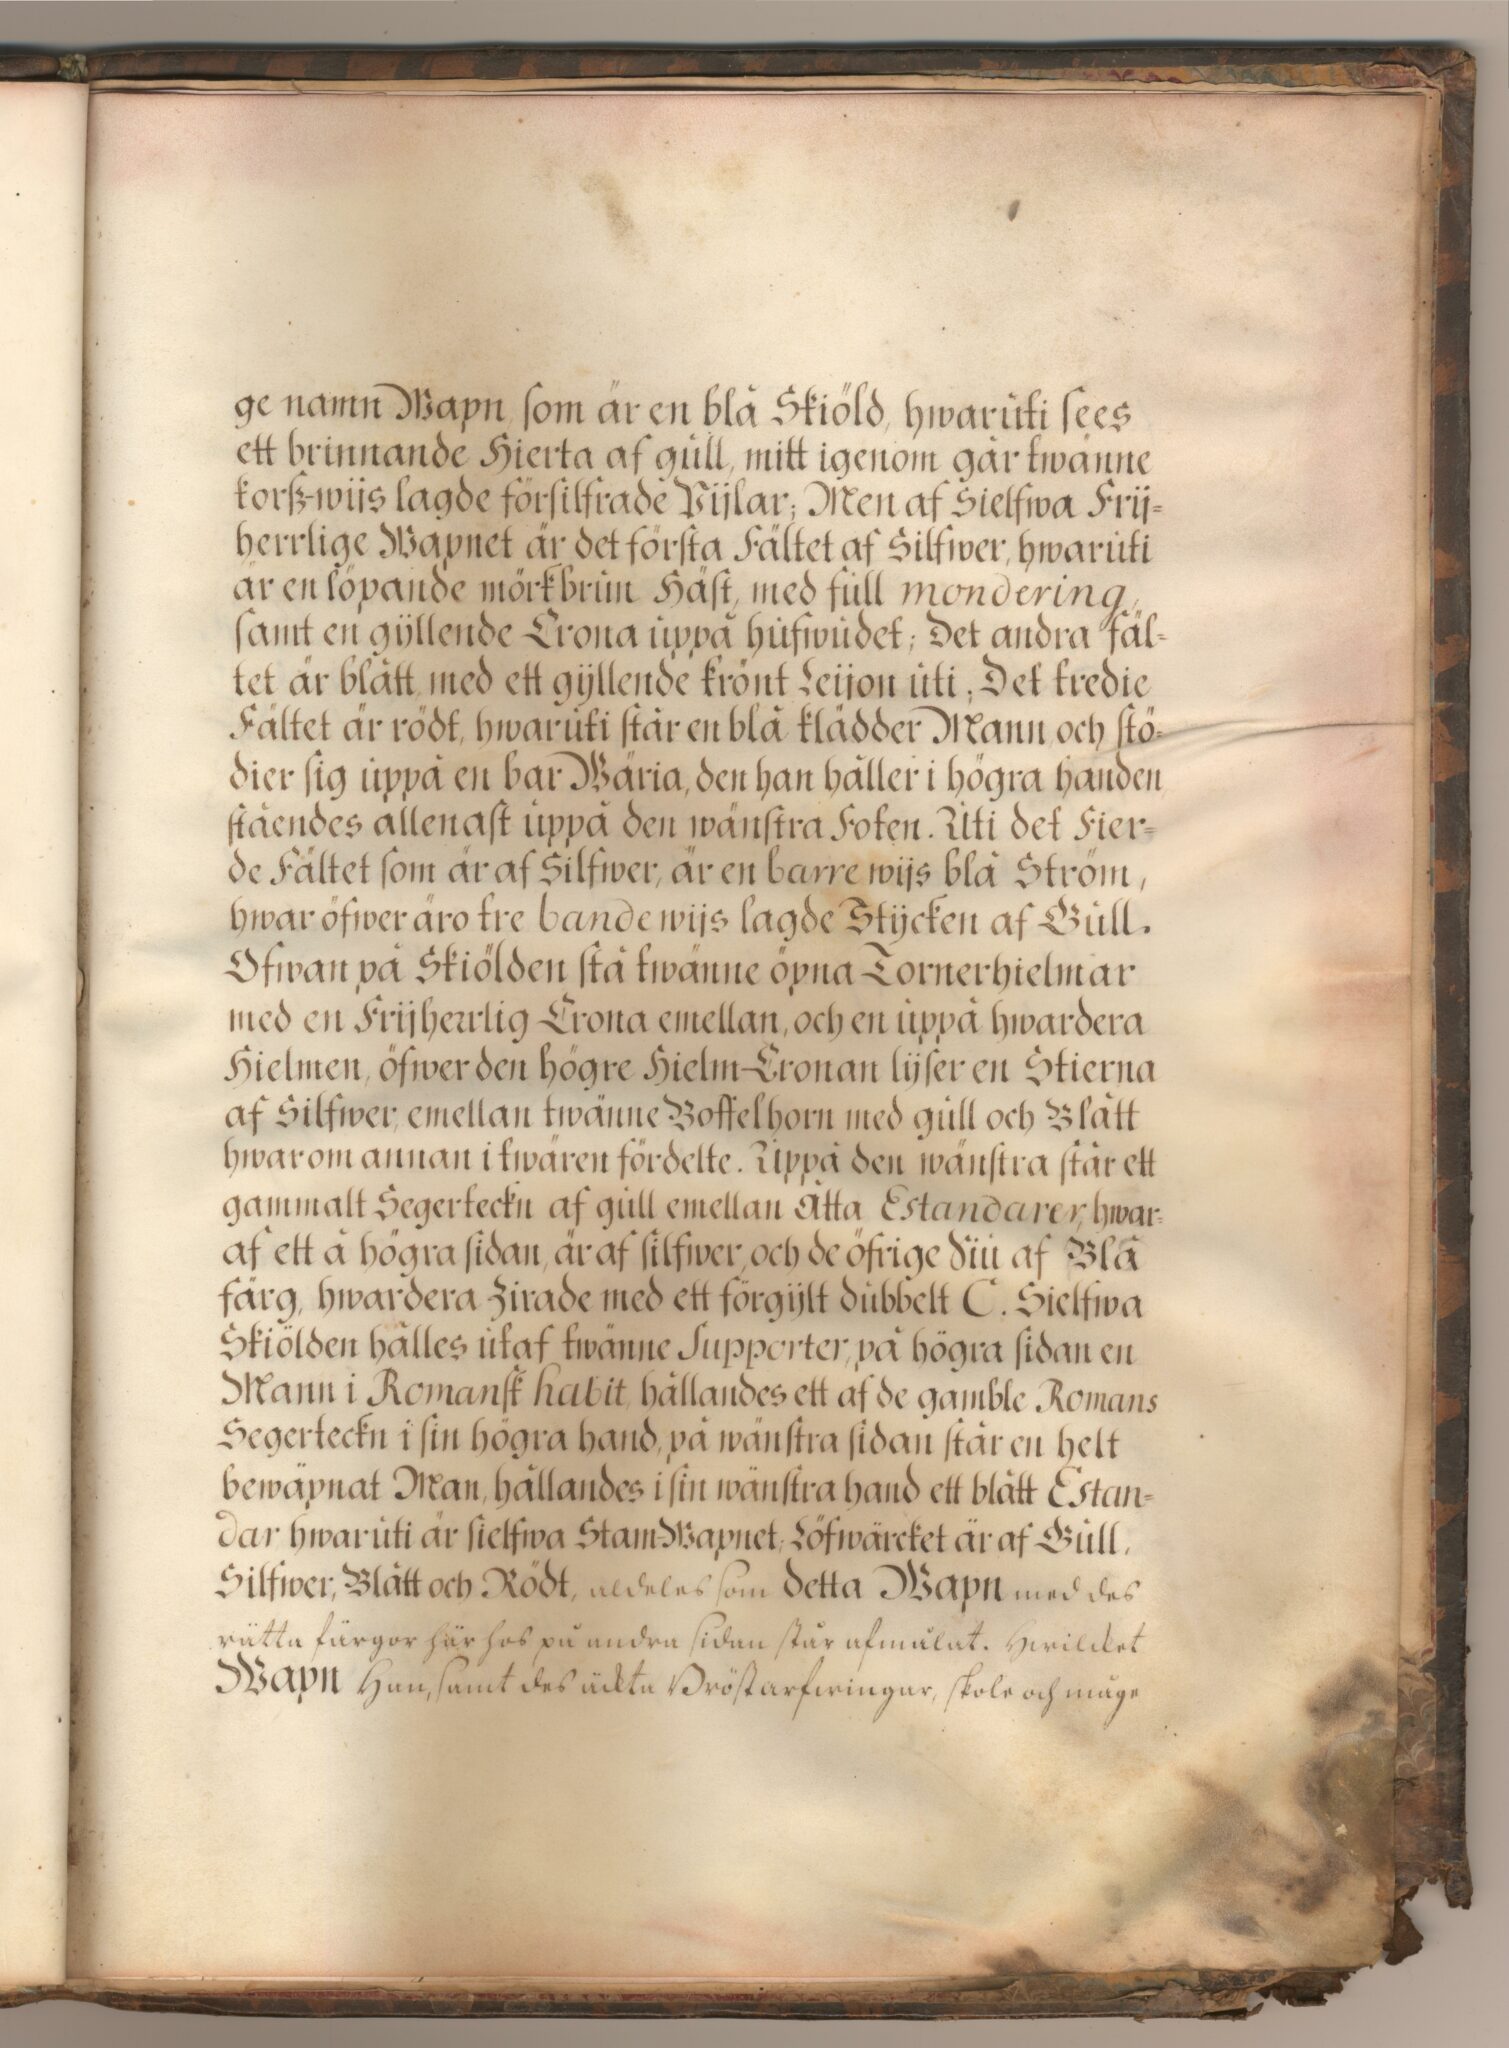 ge namn Wapn, som är en blå Skiöld, hwarůti sees
ett brinnande Hierta af gůll, mitt igenom går twänne
korß-wijs lagde försilfrade Pijlar; Men af Sielfwa Frij=
herrlige Wapnet är det första Fältet af Silfwer, hwarůti
är en löpande mörkbrůn Häst, med full mondering,
samt en gÿllende Crona ůppå hůfwůdet; Det andra fäl=
tet är blått, med ett gÿllende krönt Leijon ůti; Det tredie
Fältet är rödt, hwarůti står en blå klädder Mann, och stö=
dier sig ůppå en bar Wäria, den han håller i högra handen
ståendes allenast ůppå den wänstra Foten. Uti det Fier=
de Fältet som är af Silfwer, är en barre wijs blå Ström,
hwar öfwer äro tre bande wijs lagde Stÿcken af Gůll.
Ofwan på Skiölden stå twänne öpna Tornerhielmar
med en Frijherrlig Crona emellan, och en ůppå hwardera
Hielmen, öfwer den högre Hielm-Cronan lÿser en Stierna
af Silfwer, emellan twänne Boffelhorn med gůll och Blått
hwar om annan i twären fördelte. Uppå den wänstra står ett
gammalt Segerteckn af gůll emellan Åtta Estandarer, hwar=
af ett å högra sidan, är af silfwer, och de öfrige Siů af Blå
färg, hwardera Zirade med ett förgÿlt důbbelt C. Sielfwa
Skiölden hålles ůtaf twänne Supporter, på högra sidan en
Mann i Romansk habit, hållandes ett af de gamble Romans
Segerteckn i sin högra hand, på wänstra sidan står en helt
bewäpnat Man, hållandes i sin wänstra hand ett blått Estan=
dar hwarůti är sielfwa Stam-Wapnet; Löfwärcket är af Gůll,
Silfwer, Blått och Rödt, aldeles som detta Wapn med des
rätta färgor här hos på andra sidan står afmålat. Hwilcket
Wapn Han, samt des äckta Bröstarfwingar, skole och måge